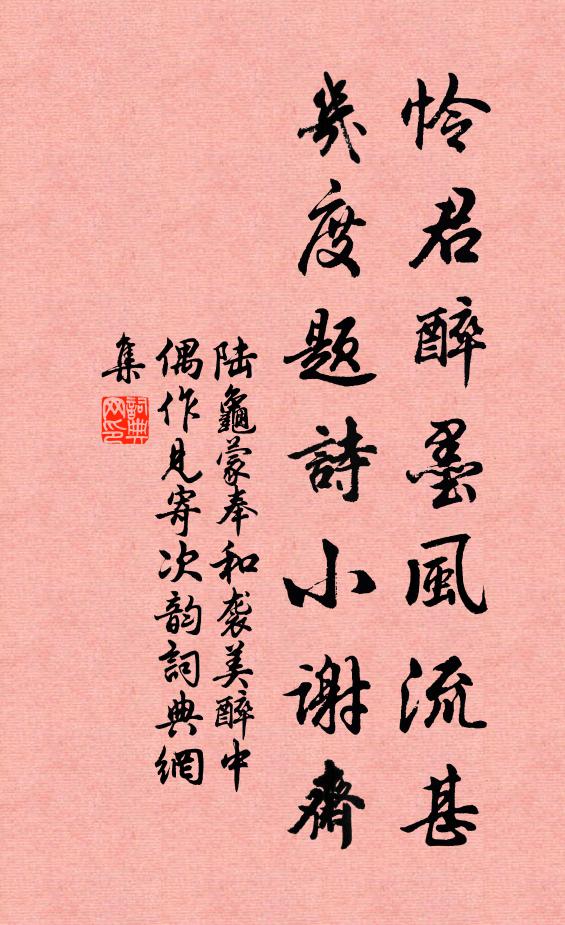 怜君醉墨風流甚
幾度題詩小谢齋
陆龜蒙奉和袭美醉中
偶作見寄次韵詞典網
集
詞典网印